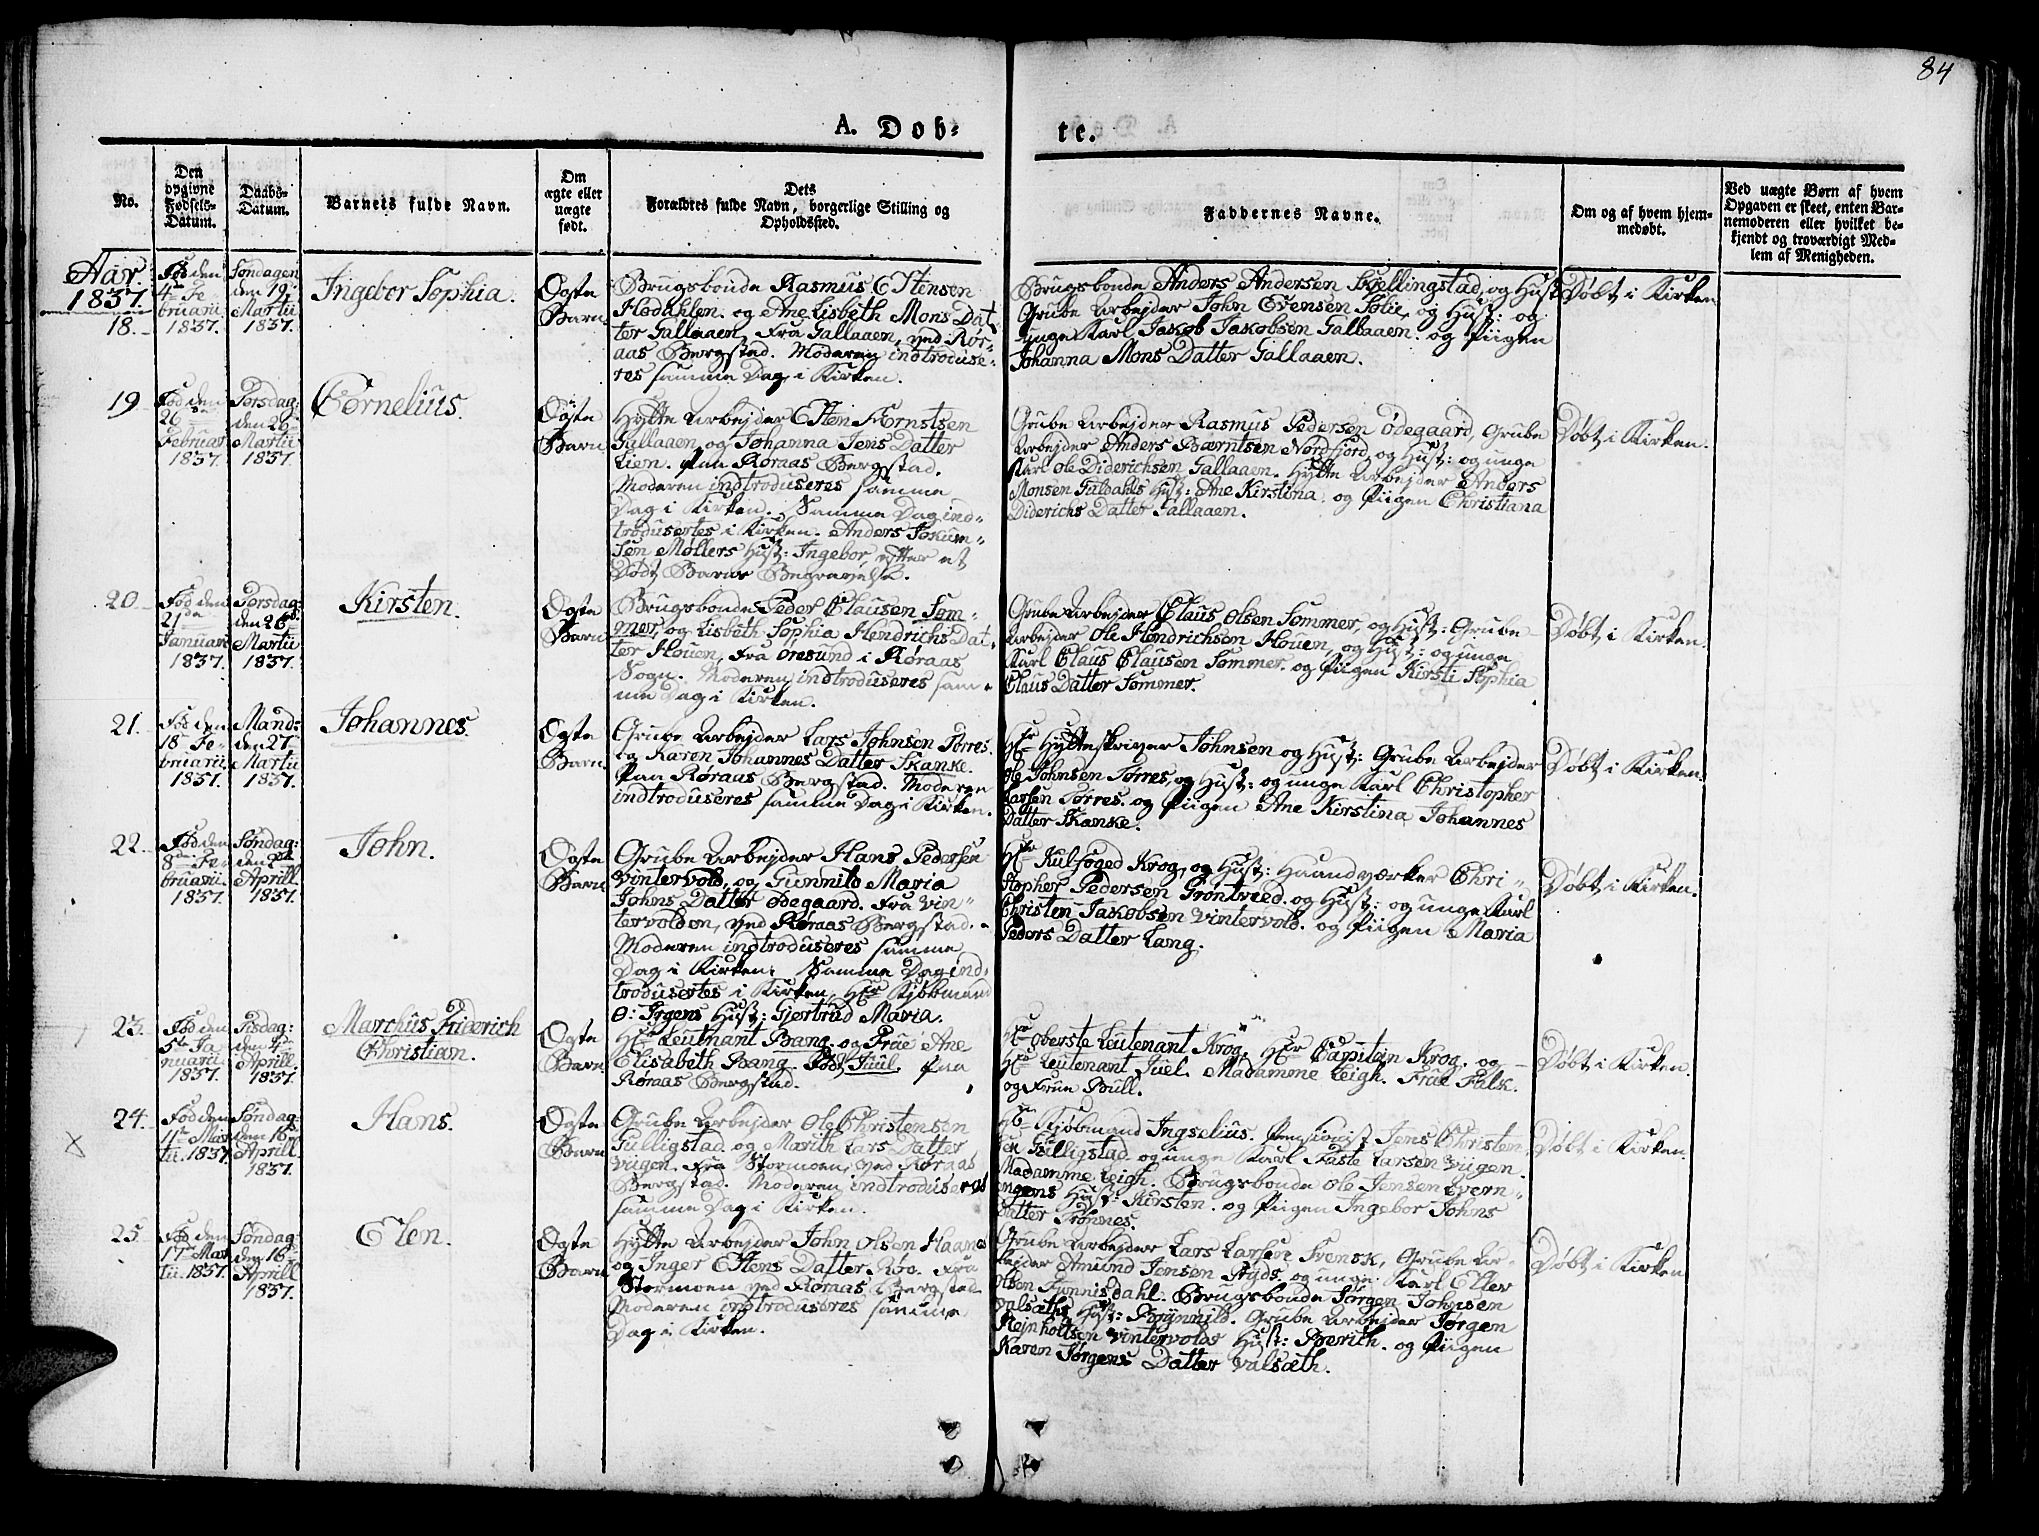 84
A. Døb-
te.
No.
Den opgivne Fødsels-Datum.
Daabs-Datum.
Barnets fulde Navn.
Om ægte eller uægte født.
Dets Forældres fulde Navn, borgerlige Stilling og Opholdssted.
Faddernes Navne.
Om og af hvem hjem-medøbt.
Ved uægte Børn af hvem Opgaven er skeet, enten Bar-nemoderen eller hvilket be-kjendt og troværdigt Med-lem af Menigheden.
Aar.
1837.
18.
Fød den
4de Fe
bruarii
1837.
Søndagen
den 19.
Martii
1837.
Ingebor Sophia.
Ægte
Barn.
Brugsbonde Rasmus Estensen
Hådahlen. og Ane Lisbeth Mons Dat
ter Gallaaen, fra Gallaaen, ved Rør-
aas Bergstad. Moderen indtroduse-
res samme Dag i Kirken.
Brugsbonde Anders Andersen Skjellingstad, og Hust:
Grube Arbejder John Evensen Solie, og Hust: og
unge Karl Jakob Jakobsen Gallaaen. og Piigen
Johanna Mons Datter Gallaaen.
Døbt i Kirken
19.
Fød den
26de
Februar
1837.
Torsdag:
den 26
Martii
1837.
Cornelius.
Ægte
Barn
Hytte Arbejder Esten Børntsen
Gallaaen, og Johanna Jens Datter
Lien. Paa Røraas Bergstad.
Moderen indtroduseres samme
Dag i Kirken. Samme Dag ind-
trodusertes i Kirken. Anders Jokum-
sen Møllers Hust: Ingebor, efter et
Dødt Barns Begravelse.
Grube Arbejder Rasmus Pedersen Ødegaard, Grube
Arbejder Anders Bærntsen Nordfjord, og Hust: og unge
Karl Ole Diderichsen Gallaaen. Hytte Arbejder Anders
Monsen Guldahls Hust: Ane Kirstina. og Piigen Christiana
Diderichs Datter Gallaaen.
Døbt i Kirken.
20.
Fød den
21de
Januarii
1837.
Torsdag:
den 26de
Martii
1837.
Kirsten.
Ægte
Barn
Brugsbonde Peder Clausen Som-
mer, og Lisbeth Sophia Hendrichs Dat-
ter Houen, fra Øresund i Røraas
Sogn. Moderen indtroduseres sam-
me Dag i Kirken.
Grube Arbejder Claus Olsen Sommer, og Hust: Grube-
Arbejder Ole Hendrichsen Houen, og Hust: og unge
Karl Claus Clausen Sommer. og Piigen Kirsti Sophia
Claus Datter Sommer.
Døbt i Kirken.
21.
Fød den
18 Fe-
bruarii
1837.
Mand:
den 27
Martii
1837.
Johannes.
Ægte
Barn.
Grube Arbejder Lars Johnsen Torres.
og Karen Johannes Datter Skanke.
Paa Røraas Bergstad. Moderen
indtroduseres samme Dag i Kirken.
Hr Hytteskriver Johnsen og Hust: Grube Arbejder
Ole Johnsen Torres, og Hust: og unge Karl Christopher
Larsen Torres. og Piigen Ane Kirstina Johannes
Datter Skanke.
Døbt i Kirken.
22.
Fød den
8de Fe-
bruarii
1837.
Søndag:
den 2de
Aprill
1837.
John.
Ægte
Barn
Grube Arbejder Hans Pedersen
Vintervold, og Gunnild Maria
Johns Datter Ødegaard. Fra Vin-
tervolden, ved Røraas Bergstad.
Moderen indtroduseres samme
Dag i Kirken. Samme Dag ind-
trodusertes i Kirken, Hr Kjøbmand
O: Irgens Hust: Gjertrud Maria.
Hr Kulfoged Krog, og Hust: Haandværker Chri-
stopher Pedersen Grøntvred. og Hust: og unge Karl
Christen Jakobsen Vintervold. og Piigen Maria
Peders Datter Lang.
Døbt i Kirken.
23.
Fød den
5te Ja
nuarii
1837.
Tisdag:
den 4de
Aprill
1837.
Marchus Friderich
Christian.
Ægte
Barn
Hr Leutnant Bang. og Frue Ane
Elisabeth Bang. Født Juul. Paa
Røraas Bergstad.
Hr Oberste Leutenant Krog, Hr Capitain Krog. og
Hr Leutenant Juel. Madamme Leigh. Frue Falk.
og Frue Bull.
Døbt i Kirken.
24.
Fød den
11te Mar
tii. 1837
Søndag:
den 16
Aprill
1837.
Hans.
Ægte
Barn
Grube Arbejder Ole Christensen
Gulligstad. og Marith Lars Datter
Viigen. fra Stormoen, ved Røraas
Bergstad. Moderen indtroduseres
samme Dag i Kirken.
Hr Kjøbmand Ingselius. Pensionist Jens Christen
sen Gulligstad og unge Karl Faste Larsen Viigen
Madamme Leigh. Brugsbonde Ole Jensen Evern-
engens Hust: Kirsten. og Piigen Ingebor Johns
Datter Trønnes.
Døbt i Kirken.
25.
Fød den
17 Mar
tii. 1837.
Søndag:
den 16
Aprill
1837.
Elen.
Ægte
Barn
Hytte Arbejder John Olsen Haanes
og Inger Estens Datter Rro. fra
Stormoen ved Røraas Bergstad
Moderen indtroduseres samme
Dag i Kirken.
Grube Arbejder Lars Larsen Svensk, Grube Ar-
bejder Amund Jensen Ryds. og unge Karl Eller
Olsen Funnisdahl. Brugsbonde Jørgen Johnsen
Valsæths Hust: Brynnild. Grube Arbejder Jørgen
Reinholtsen Vintervolds Hust: Berith. og Piigen
Karen Jørgens Datter Valsæth.
Døbt i Kirken